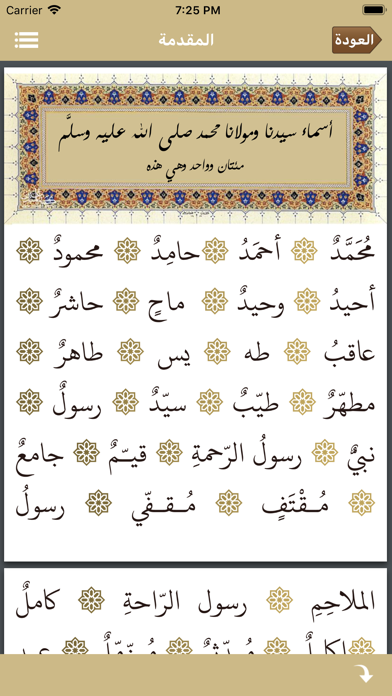 Carrier 7:25 PM
العودة المقدمة
أسماء سيدنا ومولانا محمد صلى الله عليه وسلَّم
مئتان وواحد وهي هذه
مُحَمَّدٌ أحمَدُ حامِدٌ محمودٌ
أحيدُ وحيدٌ ماحٍ حاشرٌ
عاقبُ طه يس طاهرٌ
مطهّرٌ طيّبٌ سيّدٌ رسولٌ
نبيٌّ رسولُ الرّحمةِ قيّمٌ جامعٌ
مُقْتَفٍ مُقفّي رسولُ
الملاحِمِ رسول الرّاحةِ كاملٌ